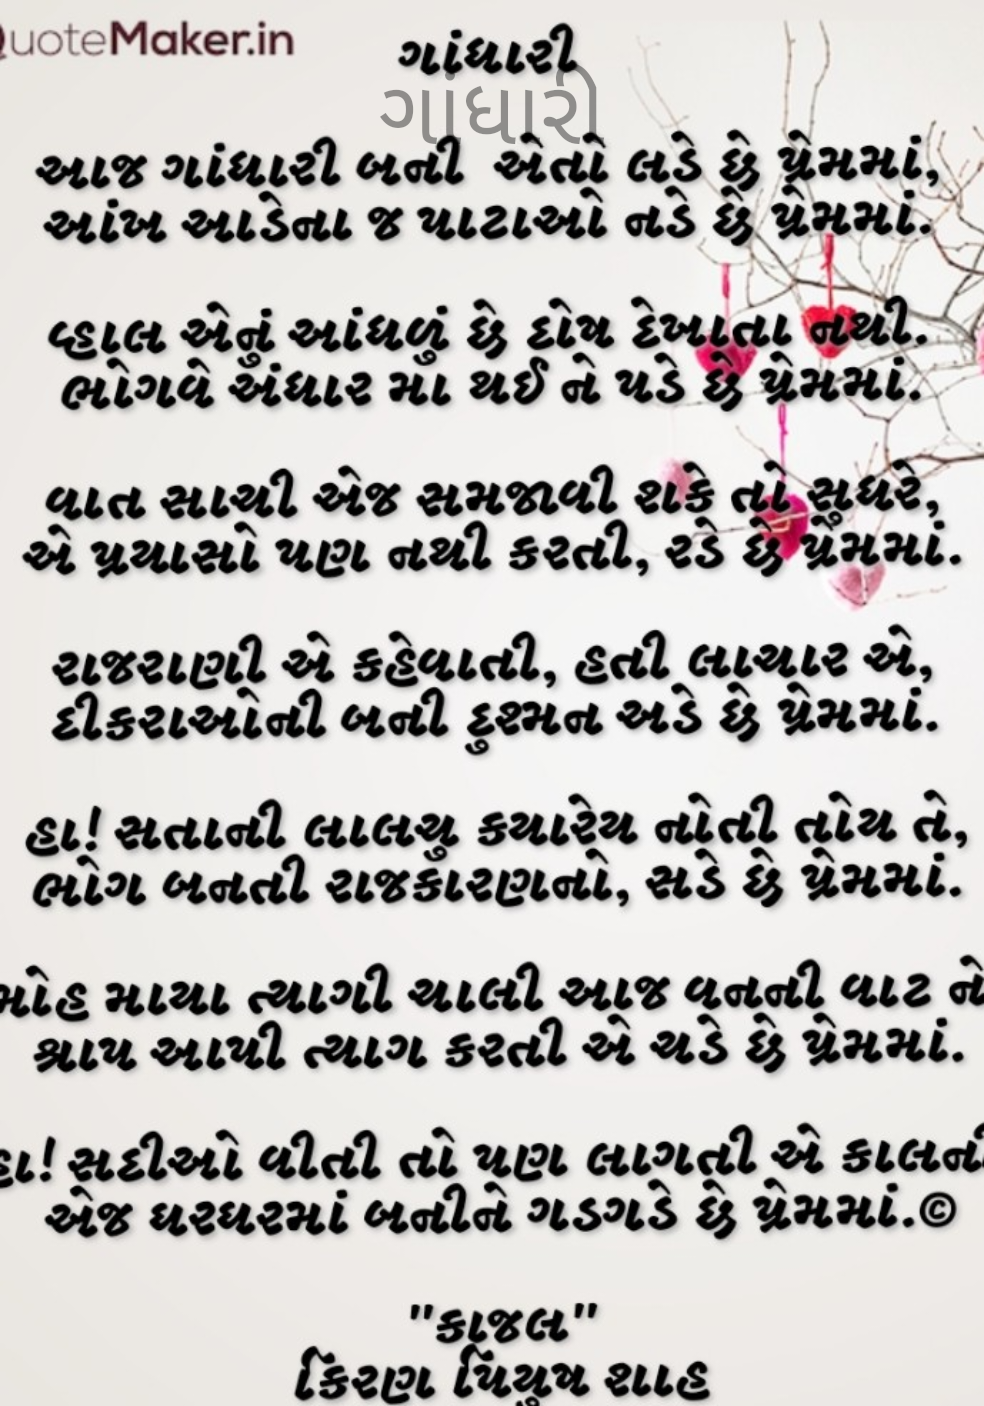 QuoteMaker.in
ગાંધારી
ગાંધારી
આજ ગાંધારી બની એતો લડે છે પ્રેમમાં,
આંખ આડેના જ પાટાઓ નડે છે પ્રેમમાં.
વ્હાલ એનું આંધળું છે દોષ દેખાતા નથી.
ભોગવે અંધાર મા થઈ ને પડે છે પ્રેમમાં.
વાત સાચી એજ સમજાવી શકે તો સુધરે,
એ પ્રયાસો પણ નથી કરતી, રડે છે પ્રેમમાં.
રાજરાણી એ કહેવાતી, હતી લાચાર એ,
દીકરાઓની બની દુશ્મન અડે છે પ્રેમમાં.
હા! સતાની લાલચુ કયારેય નોતી તોય તે,
ભોગ બનતી રાજકારણનો, સડે છે પ્રેમમાં.
મોહ માયા ત્યાગી ચાલી આજ વનની વાટ ને
શ્રાપ આપી ત્યાગ કરતી એ ચડે છે પ્રેમમાં.
હા! સદીઓ વીતી તો પણ લાગતી એ કાલની
એજ ઘરઘરમાં બનીને ગડગડે છે પ્રેમમાં.©
"કાજલ"
કિરણ પિયુષ શાહ